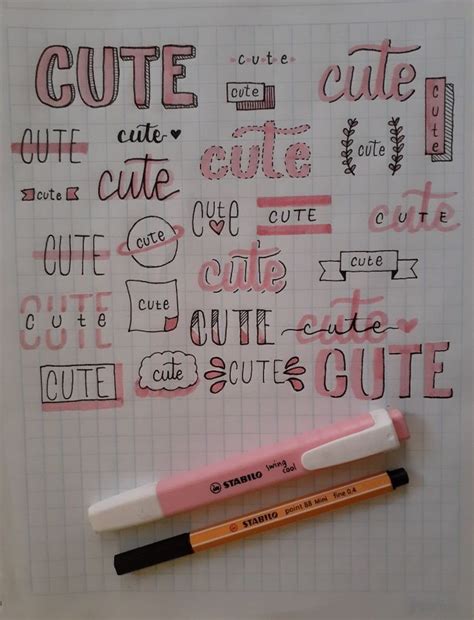 CUTE
cute
cute
cute
cute
CUTE
cute
cute
cute
cute
cute
cute
CUTE
CUTE
cute
CUTE
cute
cute
cute
cute
CUTE
cute
CUTE
cute
cute
CUTE
cute
CUTE
CUTE
STABILO swing cool
STABILO point 88 Mini fine 0.4